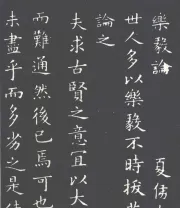 樂毅論 夏侯
世人多以樂毅不時拔
論之
夫求古賢之意宜以大
而難通然後已焉可也
未盡乎而多劣之是使